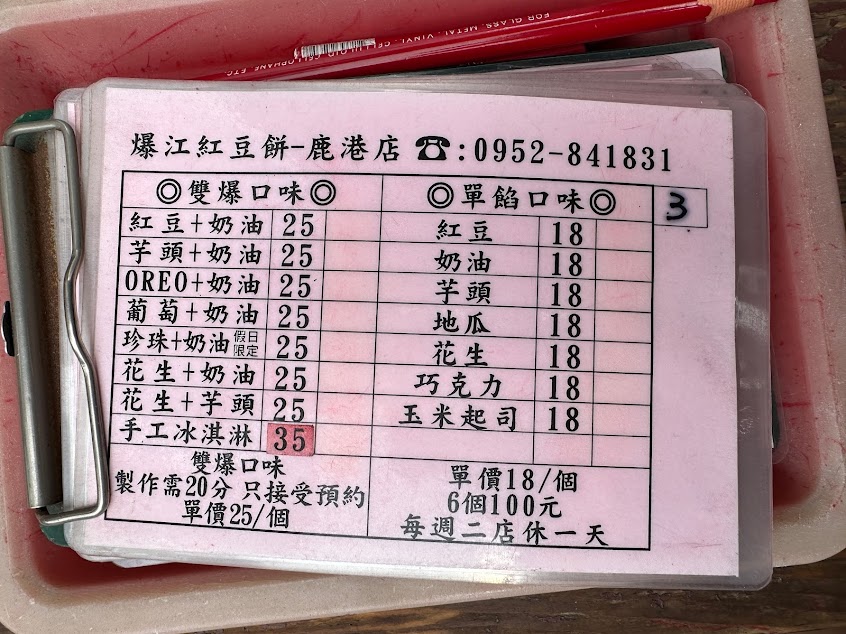 FOR GLASS, METAL, VINYL, CELLULOID, CELLOPHANE, ETC.
爆江紅豆餅-鹿港店 ☎:0952-841831
◎雙爆口味◎ ◎單餡口味◎ 3
紅豆+奶油 25 紅豆 18
芋頭+奶油 25 奶油 18
OREO+奶油 25 芋頭 18
葡萄+奶油 25 地瓜 18
珍珠+奶油 假日限定 25 花生 18
花生+奶油 25 巧克力 18
花生+芋頭 25 玉米起司 18
手工冰淇淋 35
雙爆口味
製作需20分 只接受預約
單價25/個
單價18/個
6個100元
每週二店休一天